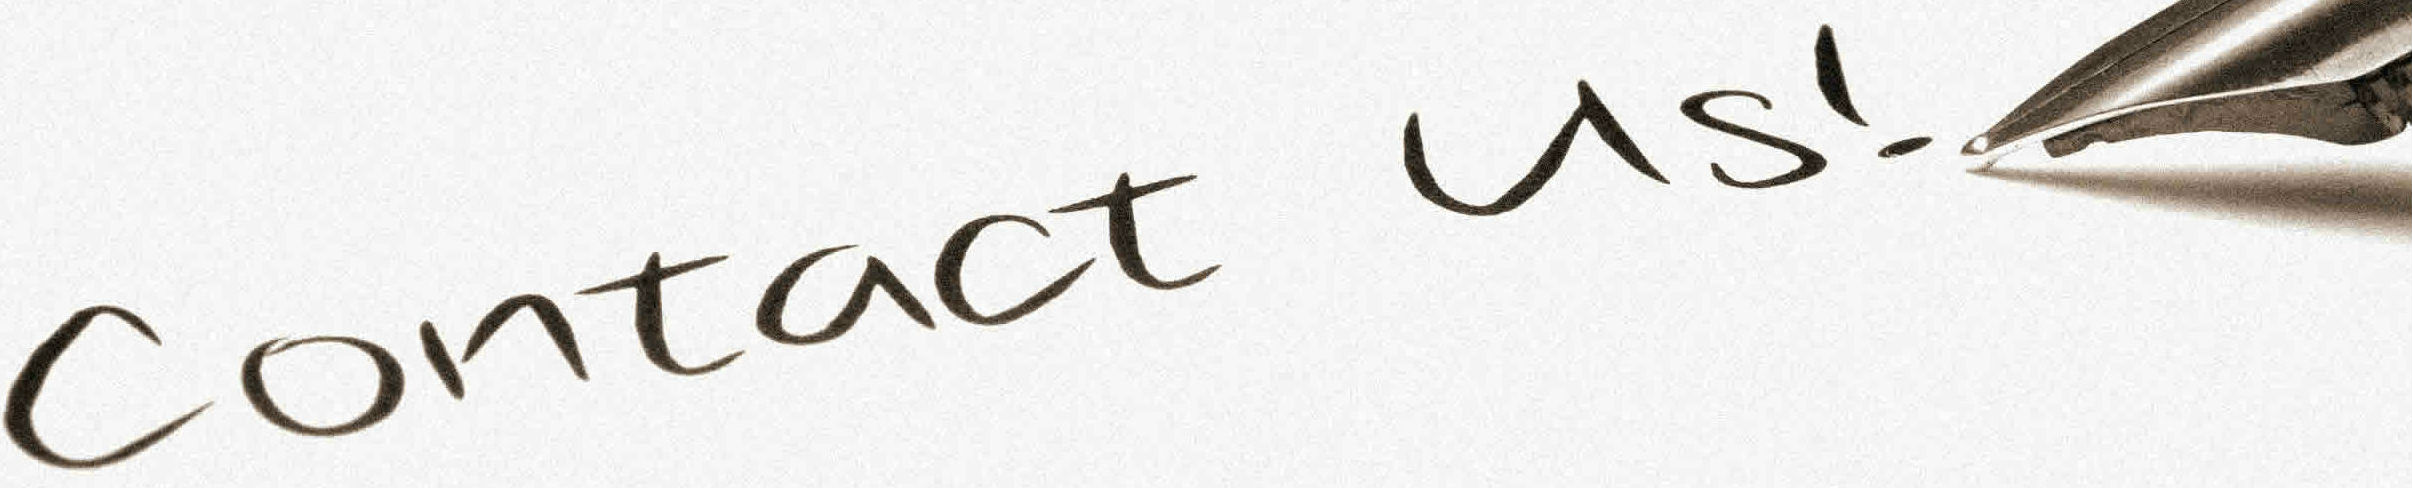 Contact us!